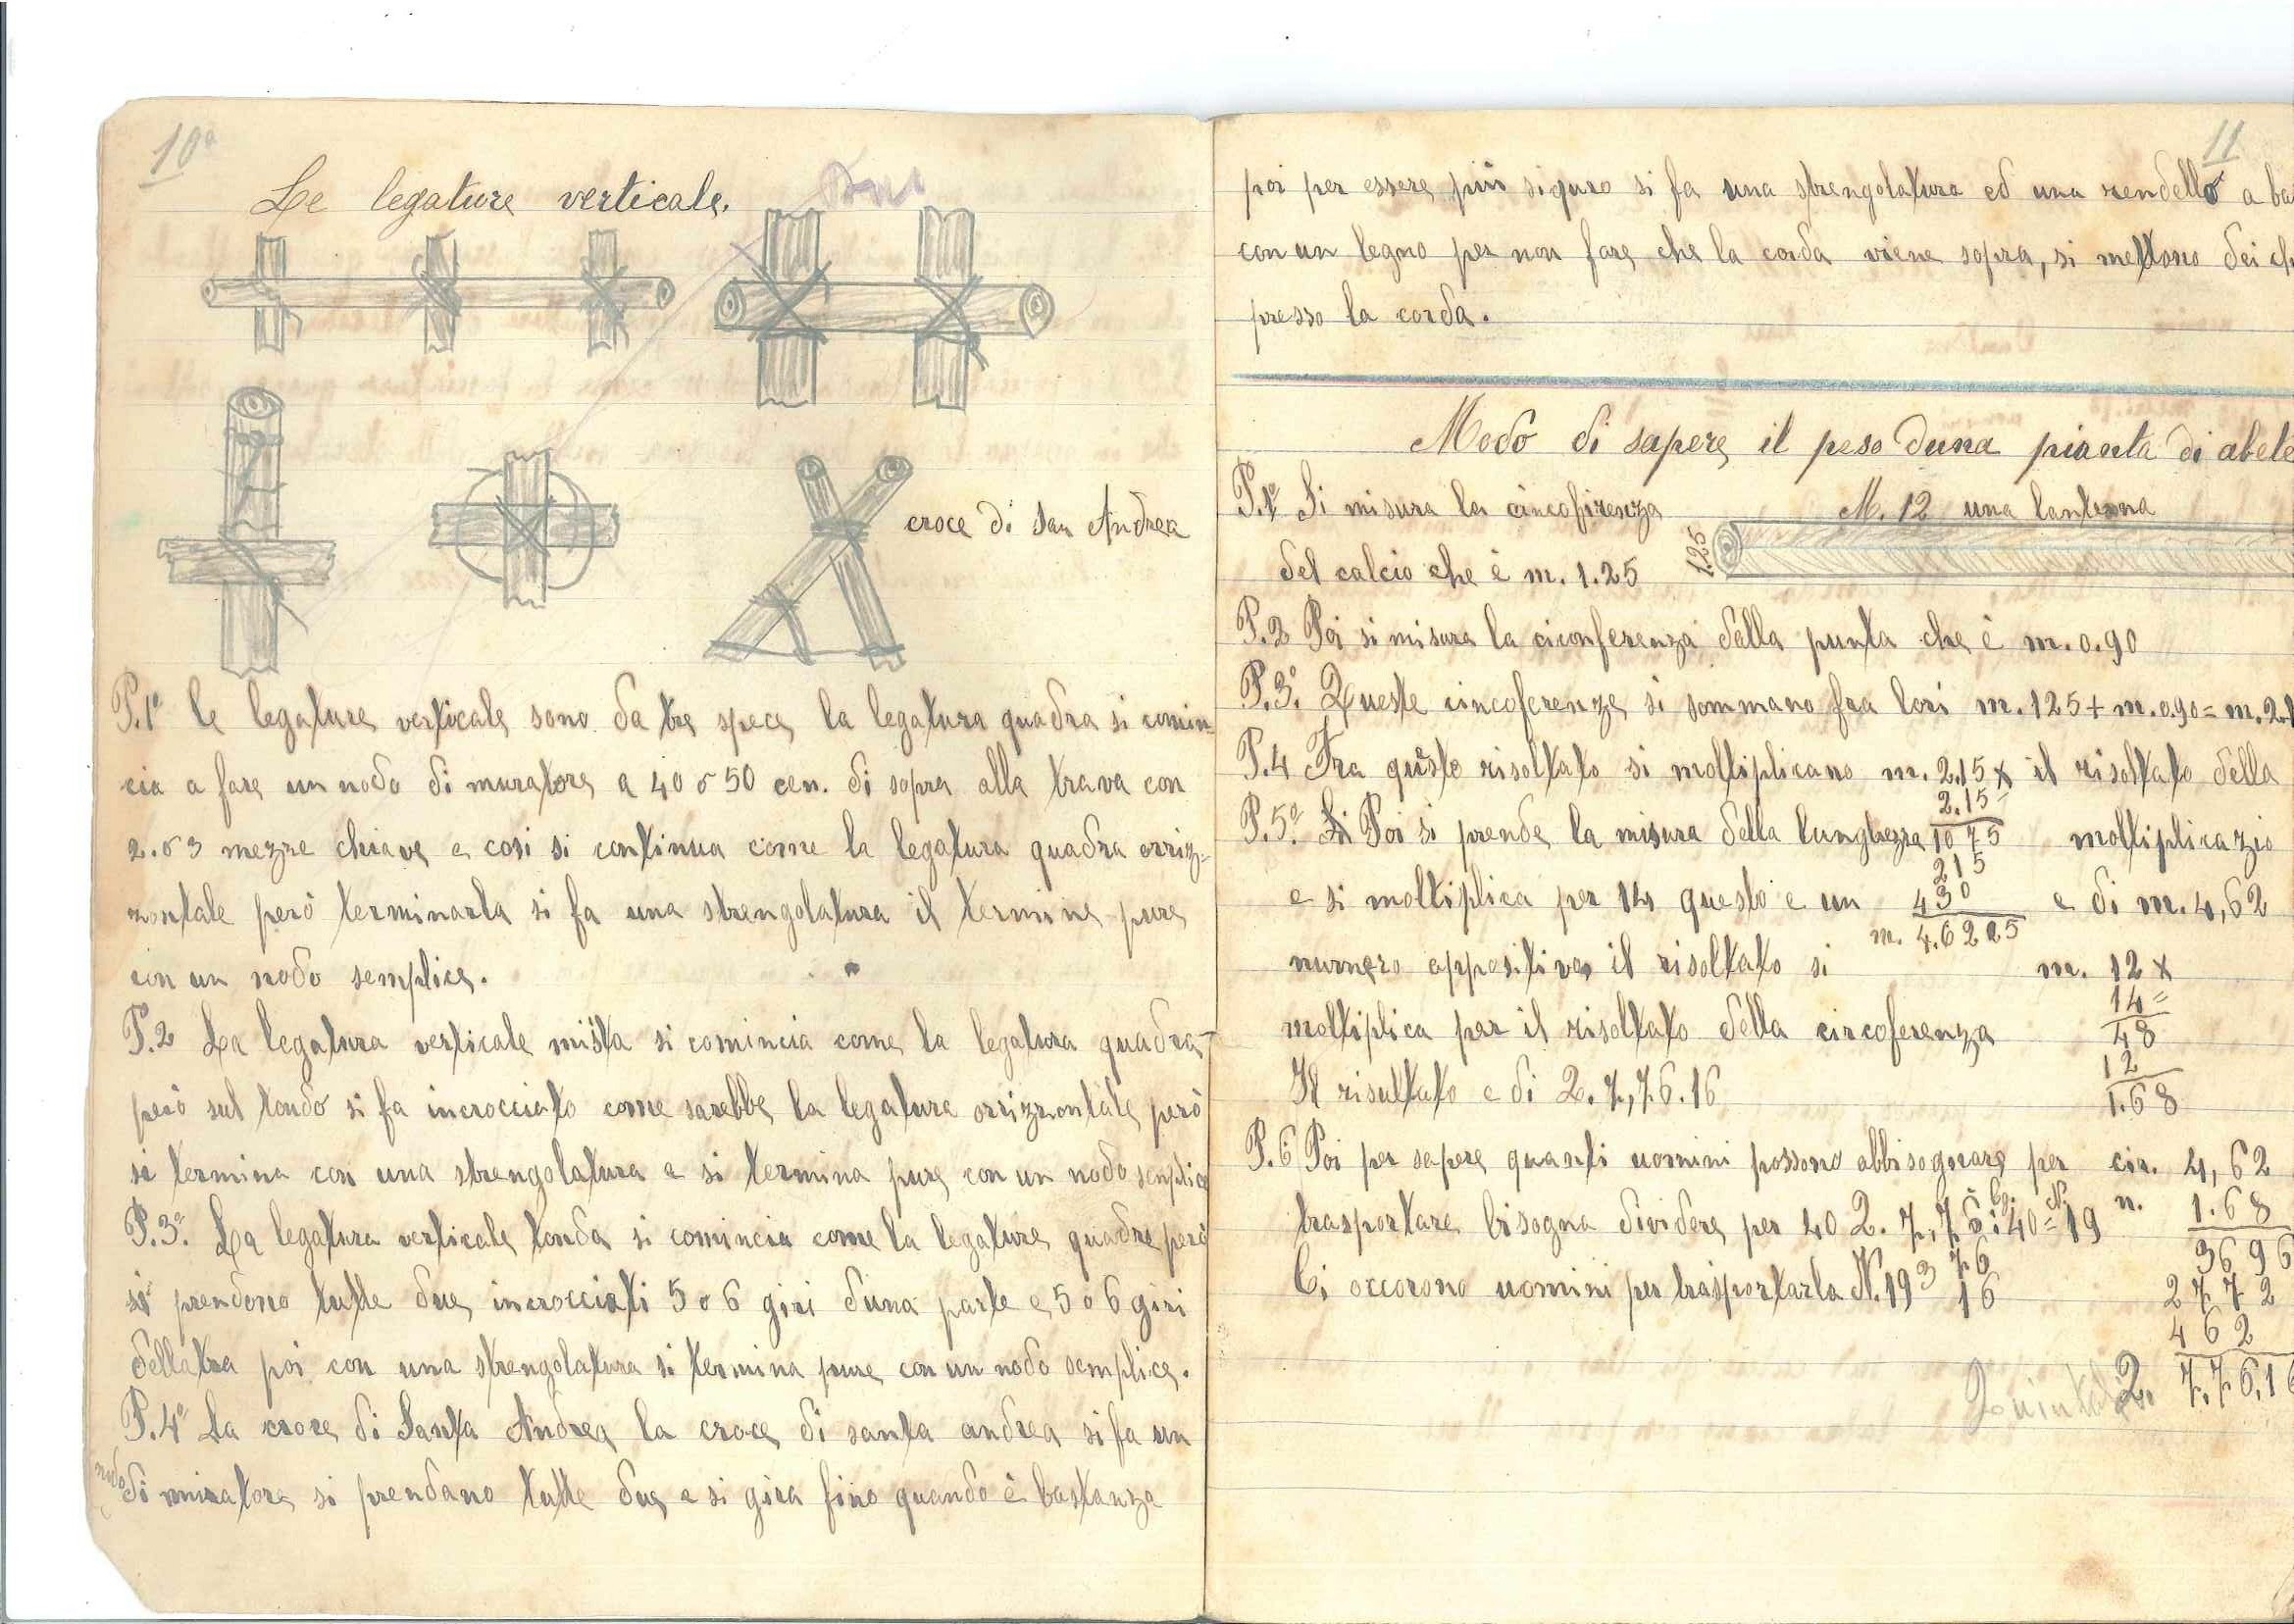 10ª
Le legature verticale.
croce di san Andrea
P.1º le legature verticale sono da tre spece la legatura quadra si comin-
cia a fare un nodo di muratore a 40 o 50 cen. di sopra alla trava con
2. o 3 mezze chiave e cosi si continua come la legatura quadra orriz-
zontale però terminarla si fa una strengolatura il termine pure
con un nodo semplice.
P.2 La legatura verticale mista si comincia come la legatura quadra
però sul tondo si fa incrocciato come sarebbe la legature orrizzontale però
si termina con una strengolatura e si termina pure con un nodo senplice
P.3º. La legatura verticale tonda si comincia come la legature quadre però
si prendono tutte due incrocciati 5 o 6 giri duna parte e 5 o 6 giri
dellatra poi con una strengolatura si termina pure con un nodo semplice.
P.4º La croce di Santa Andrea la croce di santa andrea si fa un
nodo di muratore si prendano tutte due e si gira fino quando è bastanza
11
poi per essere più siguro si fa una strengolatura ed una rendello a ba
con un legno per non fare che la corda viene sopra, si mettono dei ch
presso la corda.
Modo di sapere il peso duna pianta di abete
P.1º Si misura la circofirenza
M. 12 una lanterna
1.25
del calcio che è m. 1.25
P.2 Poi si misura la ciconferenza della punta che è m. 0.90
P.3º. Queste circoferenze si sommano fra lori m. 125 + m. 0.90 = m. 2.1
P.4 Fra questo risoltato si moltiplicano m. 2.15 x il risoltato della
2.15=
P.5º. Poi si prende la misura della lunghezza 1075 moltiplicazio
215
e si moltiplica per 14 questo e un 430 e di m. 4,62
m. 4.6225
numero appositivo il risoltato si m. 12 x
14=
moltiplica per il risoltato della circoferenza 48
12
Il risultato e di 2. 7,76.16 1.68
P.6 Poi per sapere quanti uomini possono abbisognare per cir. 4,62
trasportare bisogna dividere per 40 2. 7,7 : 40 = 19 n. 1.68
3696
Ci occorono uomini per trasportarla N. 19 3 76
16
2772
462
Quintali 2. 7.76,16